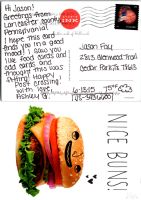 Hi Jason!
Greetings from
Lancaster county
Pennsylvania!
I hope this card
finds you in a good
mood! I also
love food cards and
odd cards and
thought this was
fitting! Happy
Post crossing.
with love
Jason Fay
2813 Glenwood Trail
Cedar Park Tx 78613
6-18-15
75°F
US-3436200
NICE BUNS!